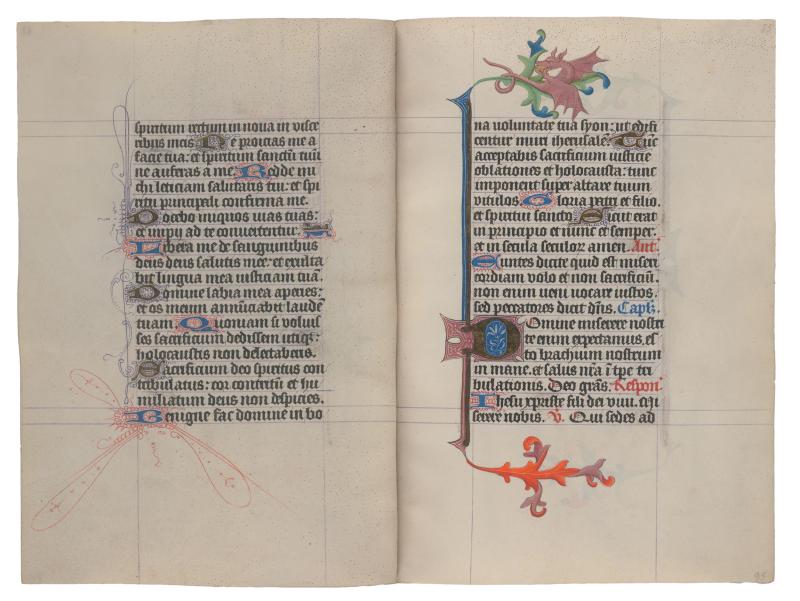 spiritum rectum in noua in visce
ribus meis Ne proicias me a
facie tua: et spiritum sanctū tuū
ne auferas a me. Redde mi
chi leticiam salutaris tui: et spi
ritu principali confirma me.
Docebo iniquos uias tuas:
et impii ad te conuertentur.
Libera me de sanguinibus
deus deus salutis mee: et exulta
bit lingua mea iusticiam tuā.
Domine labia mea aperies:
et os meum annūciabit laudē
tuam. Quoniam si voluis
ses sacrificium dedissem utiqȝ:
holocaustis non delectaberis.
Sacrificium deo spiritus con
tribulatus: cor contritū et hu
miliatum deus non despicies.
Benigne fac domine in bo
na voluntate tua syon: ut edifi
centur muri iherusalē. Tūc
acceptabis sacrificium iusticie
oblationes et holocausta: tunc
imponent super altare tuum
vitulos. Gloria patri et filio.
et spiritui sancto. Sicut erat
in principio et nunc et semper.
et in secula seculor amen. Ant.
Euntes dicite quid est miseri
cordiam volo et non sacrificiū.
non enim ueni uocare iustos.
sed peccatores dicit dn̄s. Capłȝ.
Domine miserere nostri
te enim expectamus. es
to brachium nostrum
in mane. et salus nr̄a ī tpe tri
bulationis. Deo grās. Respon
Ihesu xpriste fili dei viui.
serere nobis. V. Qui sedes ad
95